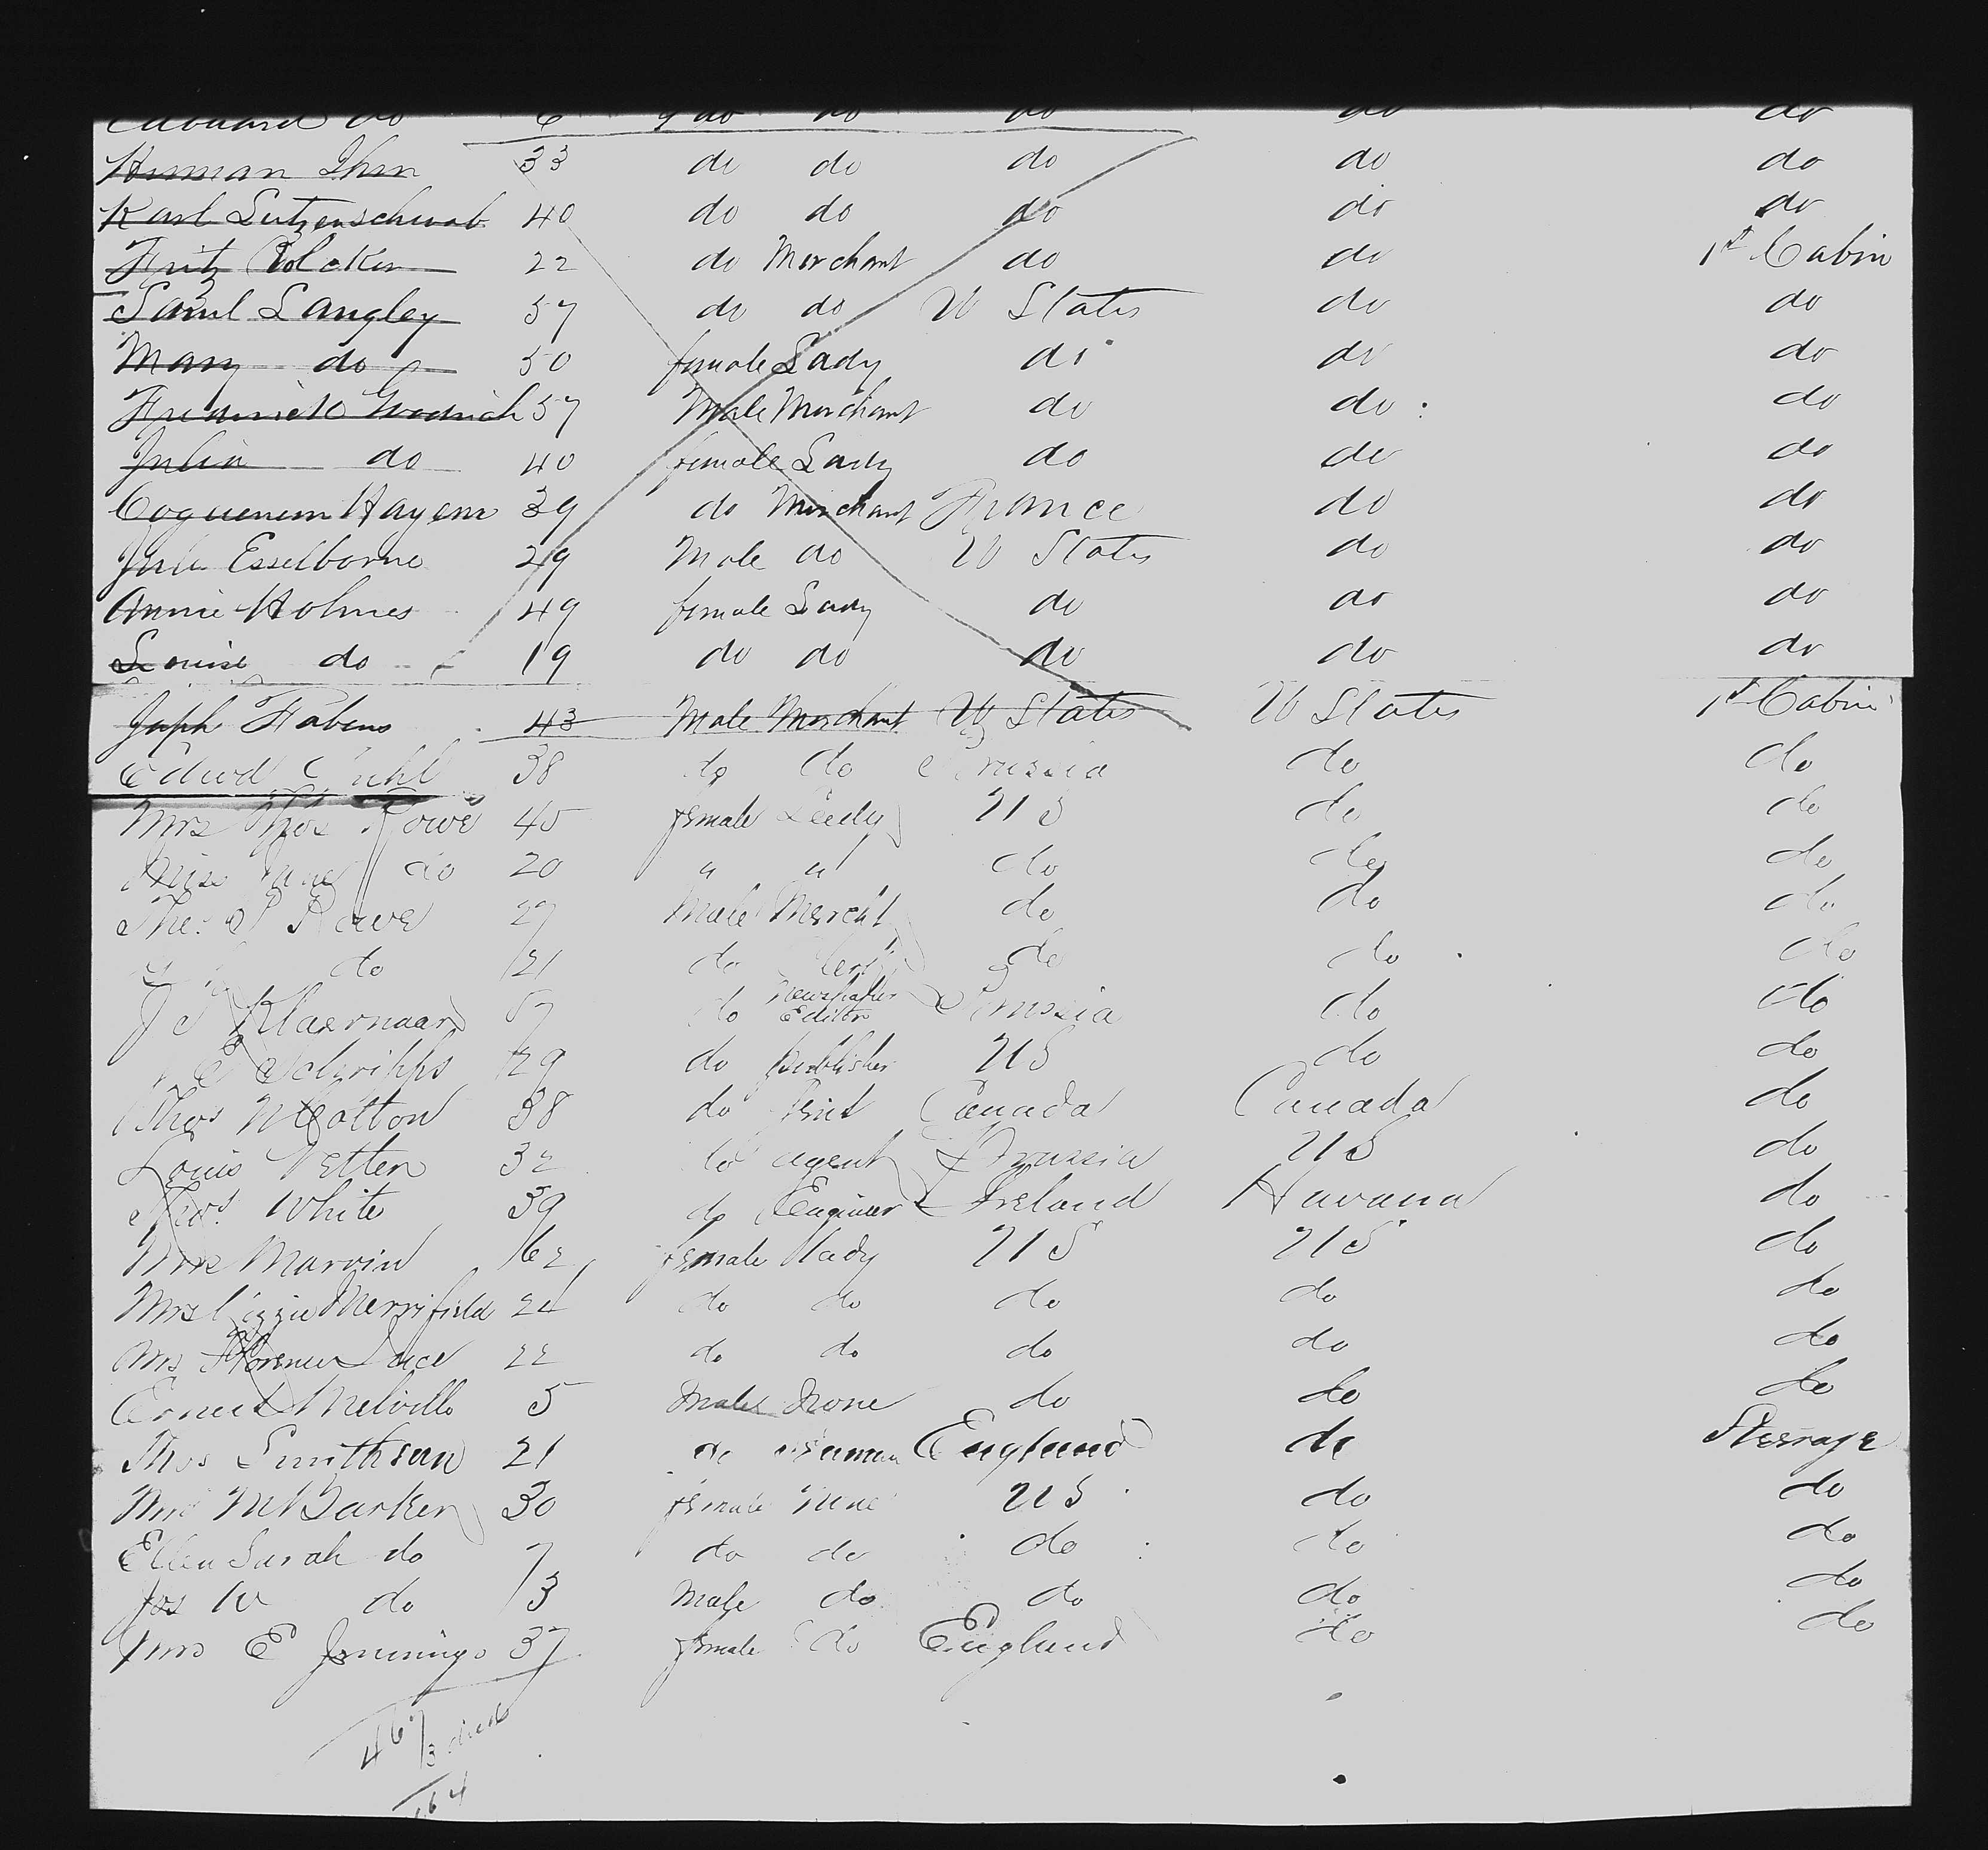 do 6 do do do do do
Herman 33 do do do do do
Karl Lutzenschwab 40 do do do do do
Fritz Volcker 22 do Merchant do do 1st Cabin
Saml Langley 57 do do U States do do
Mary do 50 female Lady do do do
Frederick Goodrich 57 Male Merchant do do do
Julia do 40 female Lady do do do
Coguenem Hayem 39 do Merchant France do do
Jule Esselborne 29 Male do U States do do
Annie Holmes 49 female Lady do do do
Louise do 19 do do do do do
Joseph Fabens 43 Male Merchant U States U States 1st Cabin
Edwd 38 do do Prussia do do
Mrs Thos Rowe 45 female Lady U S do do
Miss do 20 " " do do do
Thos S Rowe 27 Male Mercht do do do
do 21 do do do do
J S Klaernaard 57 do Newspaper Editor Prussia do do
E Scripps 29 do publisher U S do do
Thos McCotton 38 do Canada Canada do
Louis Vetter 32 do agent Prussia U S do
Thos White 39 do Engineer Ireland Havana do
Mrs Marvin 62 female lady U S U S do
Mrs Lizzie Merrifield 24 do do do do do
Mrs Florence 22 do do do do do
Ernest Melville 5 Male None do do do
Thos Smithson 21 do Seaman England do Steerage
Mrs M Barker 30 female None U S do do
Ellen Sarah do 7 do do do do do
Jos W do 3 Male do do do do
Mrs E Jennings 37 female do England do do
467
3 died
464